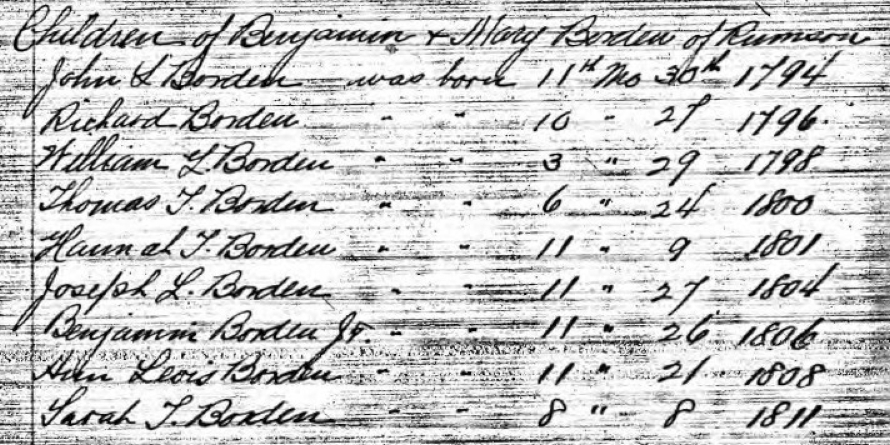 Children of Benjamin & Mary Borden of Rumson
John L Borden was born 11th Mo 30th 1794
Richard Borden " " 10 " 27 1796
William L. Borden " " 3 " 29 1798
Thomas T. Borden " " 6 " 24 1800
Hannah T. Borden " " 11 " 9 1801
Joseph L. Borden " " 11 " 27 1804
Benjamin Borden Jr. " " 11 " 26 1806
Ann Lewis Borden " " 11 " 21 1808
Sarah T Borden " " 8 " 8 1811